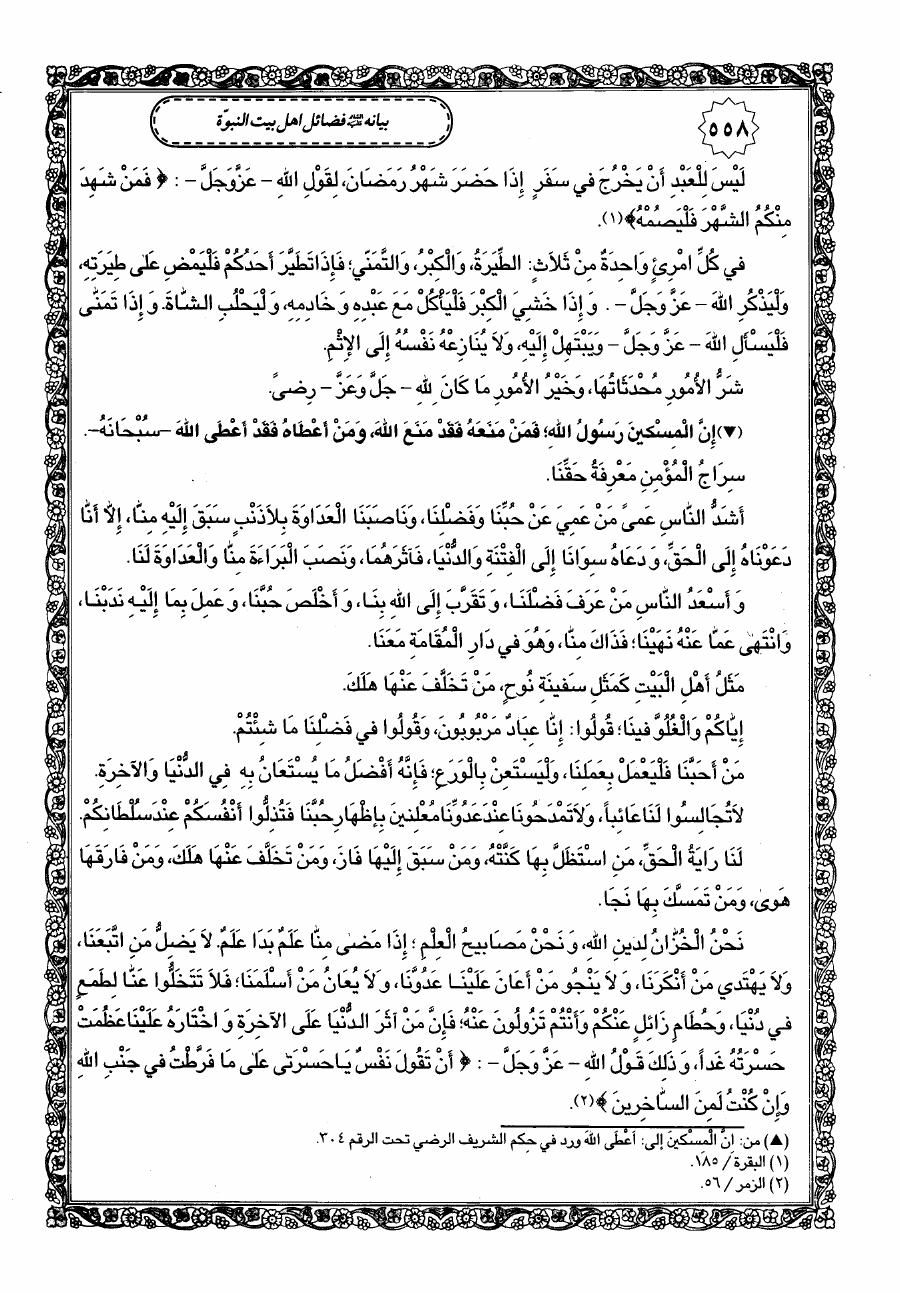 ٥٥٨
بيانه عليه السلام فضائل اهل بيت النبوّة
لَيْسَ لِلْعَبْدِ أَنْ يَخْرُجَ في سَفَرٍ إِذَا حَضَرَ شَهْرُ رَمَضَانَ، لِقَوْلِ اللهِ - عَزَّوَجَلَّ - : ﴿ فَمَنْ شَهِدَ
مِنْكُمُ الشَّهْرَ فَلْيَصُمْهُ﴾(١).
في كُلِّ امْرِئٍ وَاحِدَةٌ مِنْ ثَلَاثٍ: الطِّيَرَةُ، وَالْكِبْرُ، وَالتَّمَنّي؛ فَإِذَا تَطَيَّرَ أَحَدُكُمْ فَلْيَمْضِ عَلى طِيَرَتِهِ،
وَلْيَذْكُرِ اللهَ - عَزَّ وَجَلَّ - . وَ إِذَا خَشِيَ الْكِبْرَ فَلْيَأْكُلْ مَعَ عَبْدِهِ وَ خَادِمِهِ، وَ لْيَحْلُبِ الشَّاةَ. وَ إِذَا تَمَنّى
فَلْيَسْأَلِ اللهَ - عَزَّ وَجَلَّ - وَيَبْتَهِلْ إِلَيْهِ، وَلَا يُنَازِعْهُ نَفْسُهُ إِلَى الإِثْمِ.
شَرُّ الأُمُورِ مُحْدَثَاتُهَا، وَخَيْرُ الأُمُورِ مَا كَانَ لِلّهِ - جَلَّ وَعَزَّ - رِضىً.
(▼)إِنَّ الْمِسْكينَ رَسُولُ اللهِ؛ فَمَنْ مَنَعَهُ فَقَدْ مَنَعَ اللهَ، وَمَنْ أَعْطَاهُ فَقَدْ أَعْطَى اللهَ -سُبْحَانَهُ-.
سِرَاجُ الْمُؤْمِنِ مَعْرِفَةُ حَقِّنَا.
أَشَدُّ النَّاسِ عَمىً مَنْ عَمِيَ عَنْ حُبِّنَا وَفَضْلِنَا، وَنَاصَبَنَا الْعَدَاوَةَ بِلَا ذَنْبٍ سَبَقَ إِلَيْهِ مِنَّا، إِلاَّ أَنَّا
دَعَوْنَاهُ إِلَى الْحَقِّ، وَ دَعَاهُ سِوَانَا إِلَى الْفِتْنَةِ وَالدُّنْيَا، فَآثَرَهُمَا، وَنَصَبَ الْبَرَاءَةَ مِنَّا وَالْعَدَاوَةَ لَنَا.
وَ أَسْعَدُ النَّاسِ مَنْ عَرَفَ فَضْلَنَا، وَ تَقَرَّبَ إِلَى اللهِ بِنَا، وَ أَخْلَصَ حُبَّنَا، وَ عَمِلَ بِمَا إِلَيْهِ نَدَبْنَا،
وَانْتَهى عَمَّا عَنْهُ نَهَيْنَا؛ فَذَاكَ مِنَّا، وَهُوَ في دَارِ الْمُقَامَةِ مَعَنَا.
مَثَلُ أَهْلِ الْبَيْتِ كَمَثَلِ سَفينَةِ نُوحٍ، مَنْ تَخَلَّفَ عَنْهَا هَلَكَ.
إِيَّاكُمْ وَالْغُلُوَّ فينَا؛ قُولُوا: إِنَّا عِبَادٌ مَرْبُوبُونَ، وَقُولُوا في فَضْلِنَا مَا شِئْتُمْ.
مَنْ أَحَبَّنَا فَلْيَعْمَلْ بِعَمَلِنَا، وَلْيَسْتَعِنْ بِالْوَرَعِ؛ فَإِنَّهُ أَفْضَلُ مَا يُسْتَعَانُ بِهِ فِي الدُّنْيَا وَالآخِرَةِ.
لَا تُجَالِسُوا لَنَا عَائِباً، وَلَا تَمْدَحُونَا عِنْدَ عَدُوِّنَا مُعْلِنينَ بِإِظْهَارِ حُبِّنَا فَتُذِلُّوا أَنْفُسَكُمْ عِنْدَ سُلْطَانِكُمْ.
لَنَا رَايَةُ الْحَقِّ، مَنِ اسْتَظَلَّ بِهَا كَنَّتْهُ، وَمَنْ سَبَقَ إِلَيْهَا فَازَ، وَمَنْ تَخَلَّفَ عَنْهَا هَلَكَ، وَمَنْ فَارَقَهَا
هَوى، وَمَنْ تَمَسَّكَ بِهَا نَجَا.
نَحْنُ الْخُزَّانُ لِدينِ اللهِ، وَ نَحْنُ مَصَابيحُ الْعِلْمِ ؛ إِذَا مَضى مِنَّا عَلَمٌ بَدَا عَلَمٌ. لَا يَضِلُّ مَنِ اتَّبَعَنَا،
وَلَا يَهْتَدي مَنْ أَنْكَرَنَا، وَ لَا يَنْجُو مَنْ أَعَانَ عَلَيْنَا عَدُوَّنَا، وَ لَا يُعَانُ مَنْ أَسْلَمَنَا؛ فَلَا تَتَخَلُّوا عَنَّا لِطَمَعٍ
في دُنْيَا، وَحُطَامٍ زَائِلٍ عَنْكُمْ وَأَنْتُمْ تَزُولُونَ عَنْهُ؛ فَإِنَّ مَنْ آثَرَ الدُّنْيَا عَلَى الآخِرَةِ وَ اخْتَارَهُ عَلَيْنَا عَظُمَتْ
حَسْرَتُهُ غَداً، وَ ذَلِكَ قَوْلُ اللهِ - عَزَّ وَجَلَّ - : ﴿ أَنْ تَقُولَ نَفْسٌ يَا حَسْرَتى عَلى مَا فَرَّطْتُ في جَنْبِ اللهِ
وَإِنْ كُنْتُ لَمِنَ السَّاخِرينَ ﴾(٢).
(▲) من: إِنَّ الْمِسْكينَ إلى: أَعْطَى اللهَ ورد في حِكم الشريف الرضي تحت الرقم ٣٠٤.
(١) البقرة / ١٨٥.
(٢) الزمر / ٥٦.